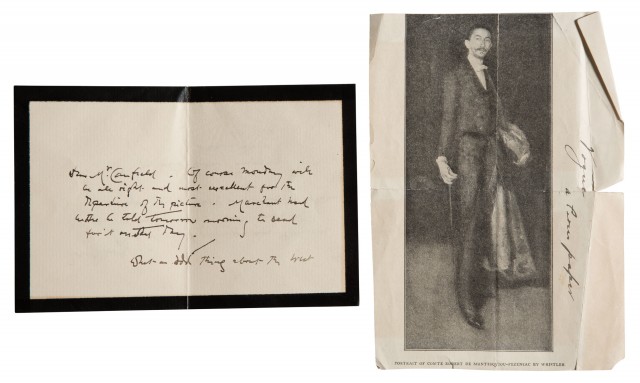 Dear Mr Canfield. Of course Monday will
be all right and most excellent for the
departure of the picture. Marchant had
better be told tomorrow morning, to send
for it on that day.
What an odd thing about the
PORTRAIT OF COMTE ROBERT DE MONTESQUIOU-FEZENSAC BY WHISTLER
Vogue
a Paris paper